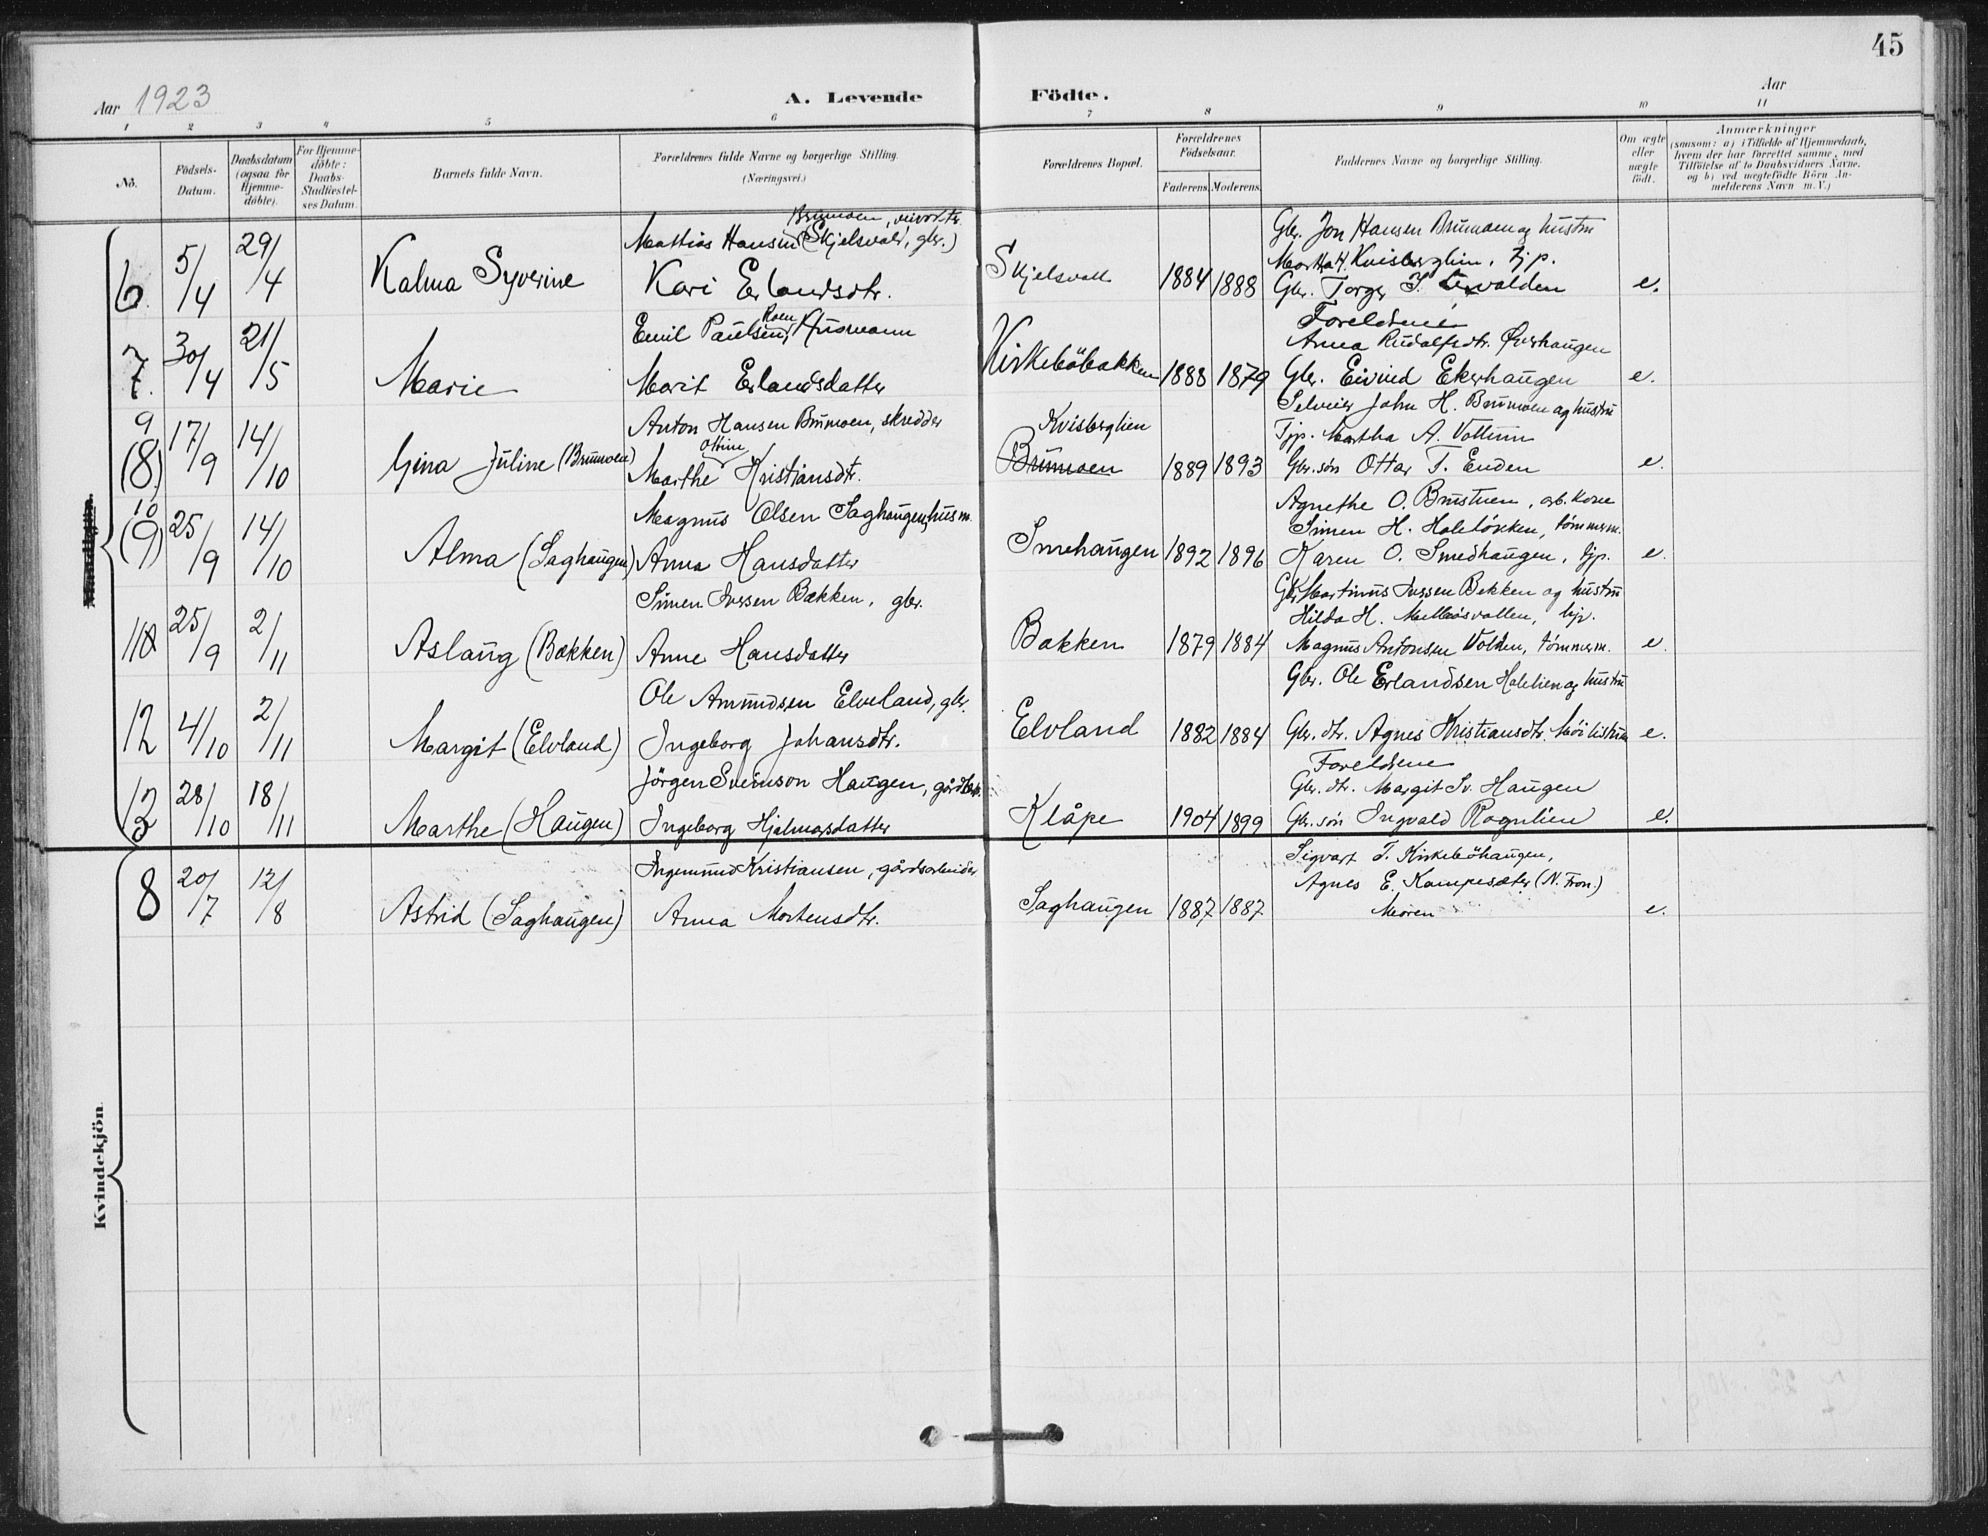 45
Aar 1923
A. Levende Födte.
Aar
1 2 3 4 5 6 7 8 9 10 11
No.
Födsels-Datum.
Daabsdatum (ogsaa for Hjemme-döbte).
For Hjemme-döbte: Daabs-Stadfæstel-ses Datum.
Barnets fulde Navn.
Forældrenes fulde Navne og borgerlige Stilling. (Næringsvei.)
Forældrenes Bopæl.
Forældrenes Födselsaar.
Faderens. Moderens.
Faddernes Navne og borgerlige Stilling.
Om ægte eller uægte födt.
Anmærkninger (saasom: a) i Tilfælde af Hjemmedaab, hvem der har forrettet samme, med Tilföielse af to Daabsvidners Navne, og b) ved uægtefödte Börn An-melderens Navn m. V.)
Brumoen,
Mattias Hansen (Skjelsvold, gbr.)
Gbr. Jon Hansen Brumoen og hustru
Martha H. Kvisberglien, tjp.
6. 5/4 29/4 Kalma Syverine Kari Erlandsdtr. Skjelsvold 1884 1888 Gbr. Torger e.
Foreldrene
Emil Paulsen Husmann
Anna Rudolfsdtr. Øverhaugen
7. 30/4 21/5 Marie Marit Erlandsdatter Kirkeböbakken 1888 1879 Gbr. Eivind Ekerhaugen e.
Selveier John H. Brumoen og hustru
Anton Hansen Brumoen, skredder
Kvisberglien
Tjp. Martha A. Vollum
9 (8) 17/9 14/10 Gina Juline (Brumoen) Marthe Kristiansdtr. Brumoen 1889 1893 Gbr. sön Ottar T. Enden e.
Agnethe O. Brustuen, arb. kone
Magnus Olsen Saghaugen, husm.
Simen H. Haleløkken, tömmerm.
10 (9) 25/9 14/10 Alma (Saghaugen) Anna Hansdatter Smehaugen 1892 1896 Karen O. Smedhaugen, tjp. e.
Gbr. Martinus Iversen Bekken og hustru
Simen Iversen Bækken, gbr.
Hilda H. tjp.
11 25/9 2/11 Aslaug (Bakken) Anne Hansdatter Bakken 1879 1884 Magnus Antonsen Volden, tömmerm. e.
Gbr. Ole Erlandsen Halelien og hustru
Ole Amundsen Elveland, gbr.
12 4/10 2/11 Margit (Elvland) Ingeborg Johansdtr. Elvland 1882 1884 Gbr. dtr. Agnes Kristiansdtr. e.
Foreldrene
Jörgen Sveinson Haugen, gårdbr.
Gbr. dtr. Margit Sv. Haugen
13 28/10 18/11 Marthe (Haugen) Ingeborg Hjalmarsdatter Klåpe 1904 1899 Gbr. sön Ingvald Rognlien e.
Ingemund Kristiansen, gårdsarbeider
Sigvart T. Kirkeböhaugen,
Agnes E. Kampesæter (N. Fron.)
8 20/7 12/8 Astrid (Saghaugen) Anna Mortensdtr. Saghaugen 1887 1887 Moren e.
Kvindekjön.